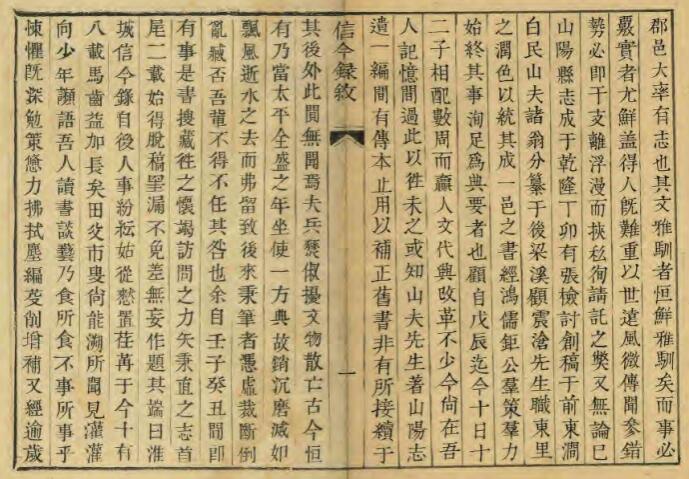 郡邑大率有志也其文雅馴者恒鮮雅馴矣而事必
覈實者尤鮮蓋得人既難重以世遠風微傳聞參錯
勢必卽于支離浮漫而挾私徇請託之獘又無論已
山陽縣志成于乾隆丁卯有張檢討創稿于前東澗
白民山夫諸翁分纂于後梁溪顧震滄先生職東里
之潤色以統其成一邑之書經鴻儒鉅公羣策羣力
始終其事洵足爲典要者也顧自戊辰迄今十日十
二子相配數周而贏人文代興改革不少今尙在吾
人記憶間過此以徃未之或知山夫先生着山陽志
遺一編間有傳本止用以補正舊書非有所接續于
信今錄敘
一
其後外此閴無聞焉夫兵燹俶擾文物散亡古今恒
有乃當太平全盛之年坐使一方典故銷沉磨滅如
飄風逝水之去而弗留致後來秉筆者憑虛裁斷倒
亂臧否吾輩不得不任其咎也余自壬子癸丑間卽
有事是書搜藏徃之懷竭訪問之力矢秉直之志首
尾二載始得脫稿罣漏不免差無妄作題其端曰淮
城信今錄自後人事紛紜姑從憖置荏苒于今十有
八載馬齒益加長矣田父市叟尙能溯所聞見灌灌
向少年頗語吾人讀書談藝乃食所食不事所事乎
悚懼既深勉策憊力拂拭塵編芟削增補又經逾歲